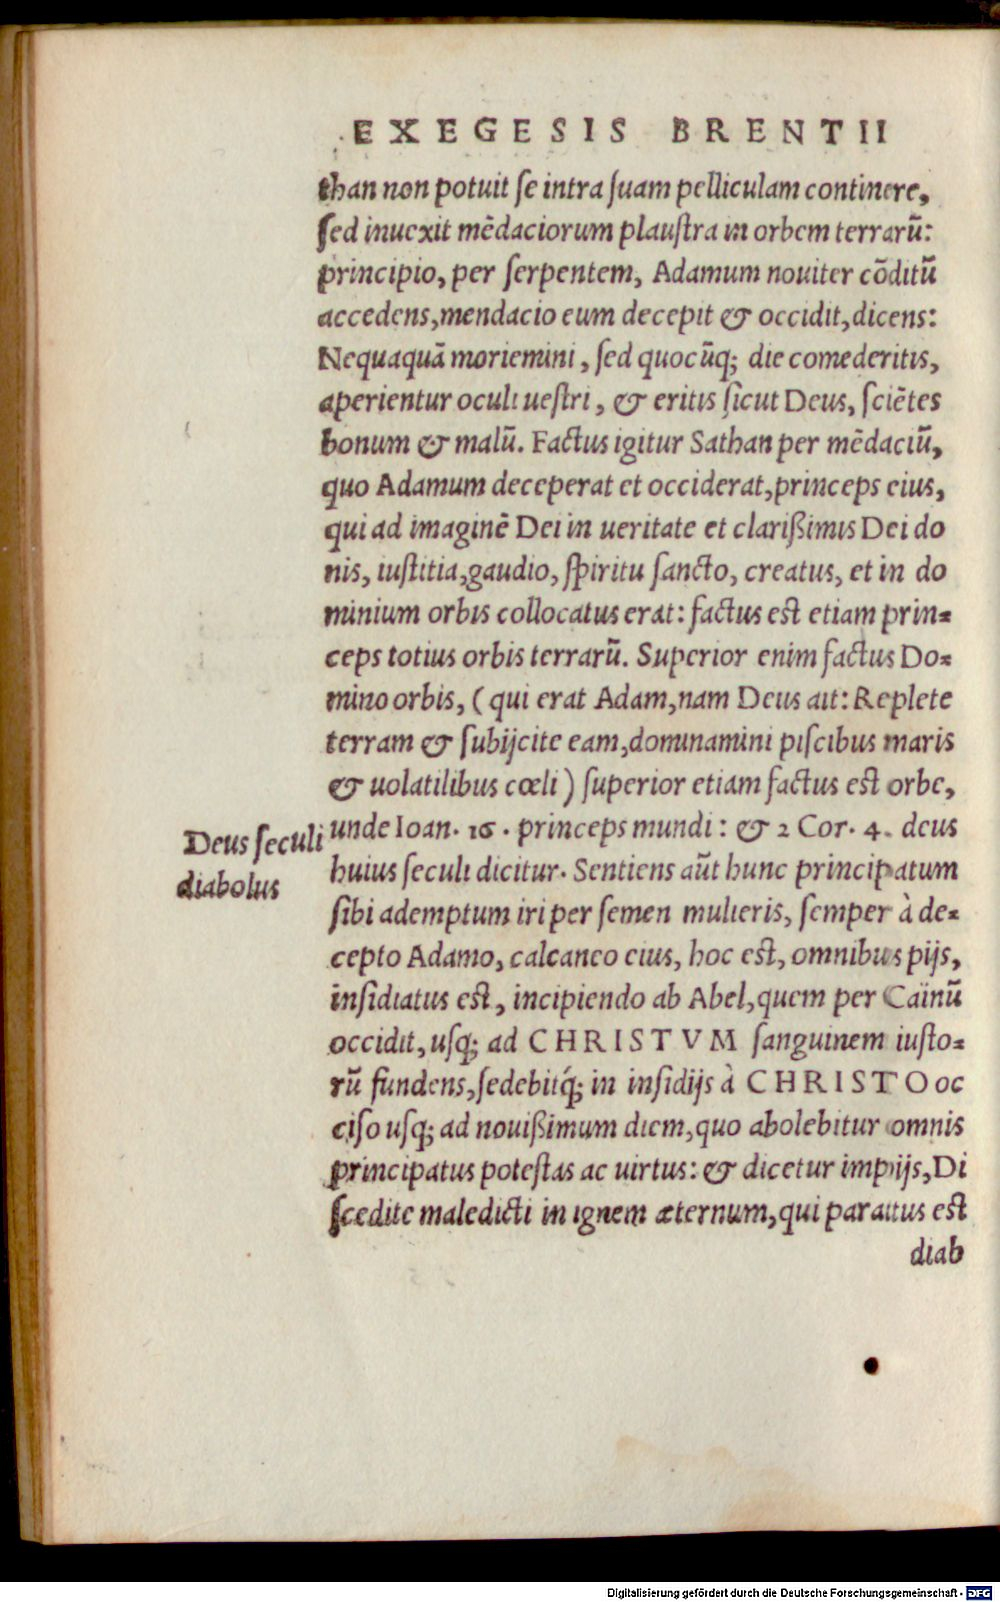 EXEGESIS BRENTII
than non potuit ſe intra ſuam pelliculam continere,
ſed inuexit mēdaciorum plauſtra in orbem terrarū:
principio, per ſerpentem, Adamum nouiter cōditū
accedens, mendacio eum decepit & occidit, dicens:
Nequaquā moriemini, ſed quocūq; die comederitis,
aperientur oculi ueſtri, & eritis ſicut Deus, ſciētes
bonum & malū. Factus igitur Sathan per mēdaciū,
quo Adamum deceperat et occiderat, princeps eius,
qui ad imaginē Dei in ueritate et clarißimis Dei do
nis, iuſtitia, gaudio, ſpiritu ſancto, creatus, et in do
minium orbis collocatus erat: factus eſt etiam prin=
ceps totius orbis terrarū. Superior enim factus Do=
mino orbis, (qui erat Adam, nam Deus ait: Replete
terram & ſubijcite eam, dominamini piſcibus maris
& uolatilibus cœli) ſuperior etiam factus eſt orbe,
unde Ioan. 16. princeps mundi: & 2 Cor. 4. deus
Deus ſeculi
diabolus
huius ſeculi dicitur. Sentiens aūt hunc principatum
ſibi ademptum iri per ſemen mulieris, ſemper à de=
cepto Adamo, calcaneo eius, hoc eſt, omnibus pijs,
inſidiatus eſt, incipiendo ab Abel, quem per Caïnū
occidit, uſq; ad CHRISTVM ſanguinem iuſto=
rū fundens, ſedebitq́; in inſidijs à CHRISTO oc
ciſo uſq; ad nouißimum diem, quo abolebitur omnis
principatus poteſtas ac uirtus: & dicetur impijs, Di
ſcedite maledicti in ignem æternum, qui paratus eſt
diab
Digitalisierung gefördert durch die Deutsche Forschungsgemeinschaft - DFG